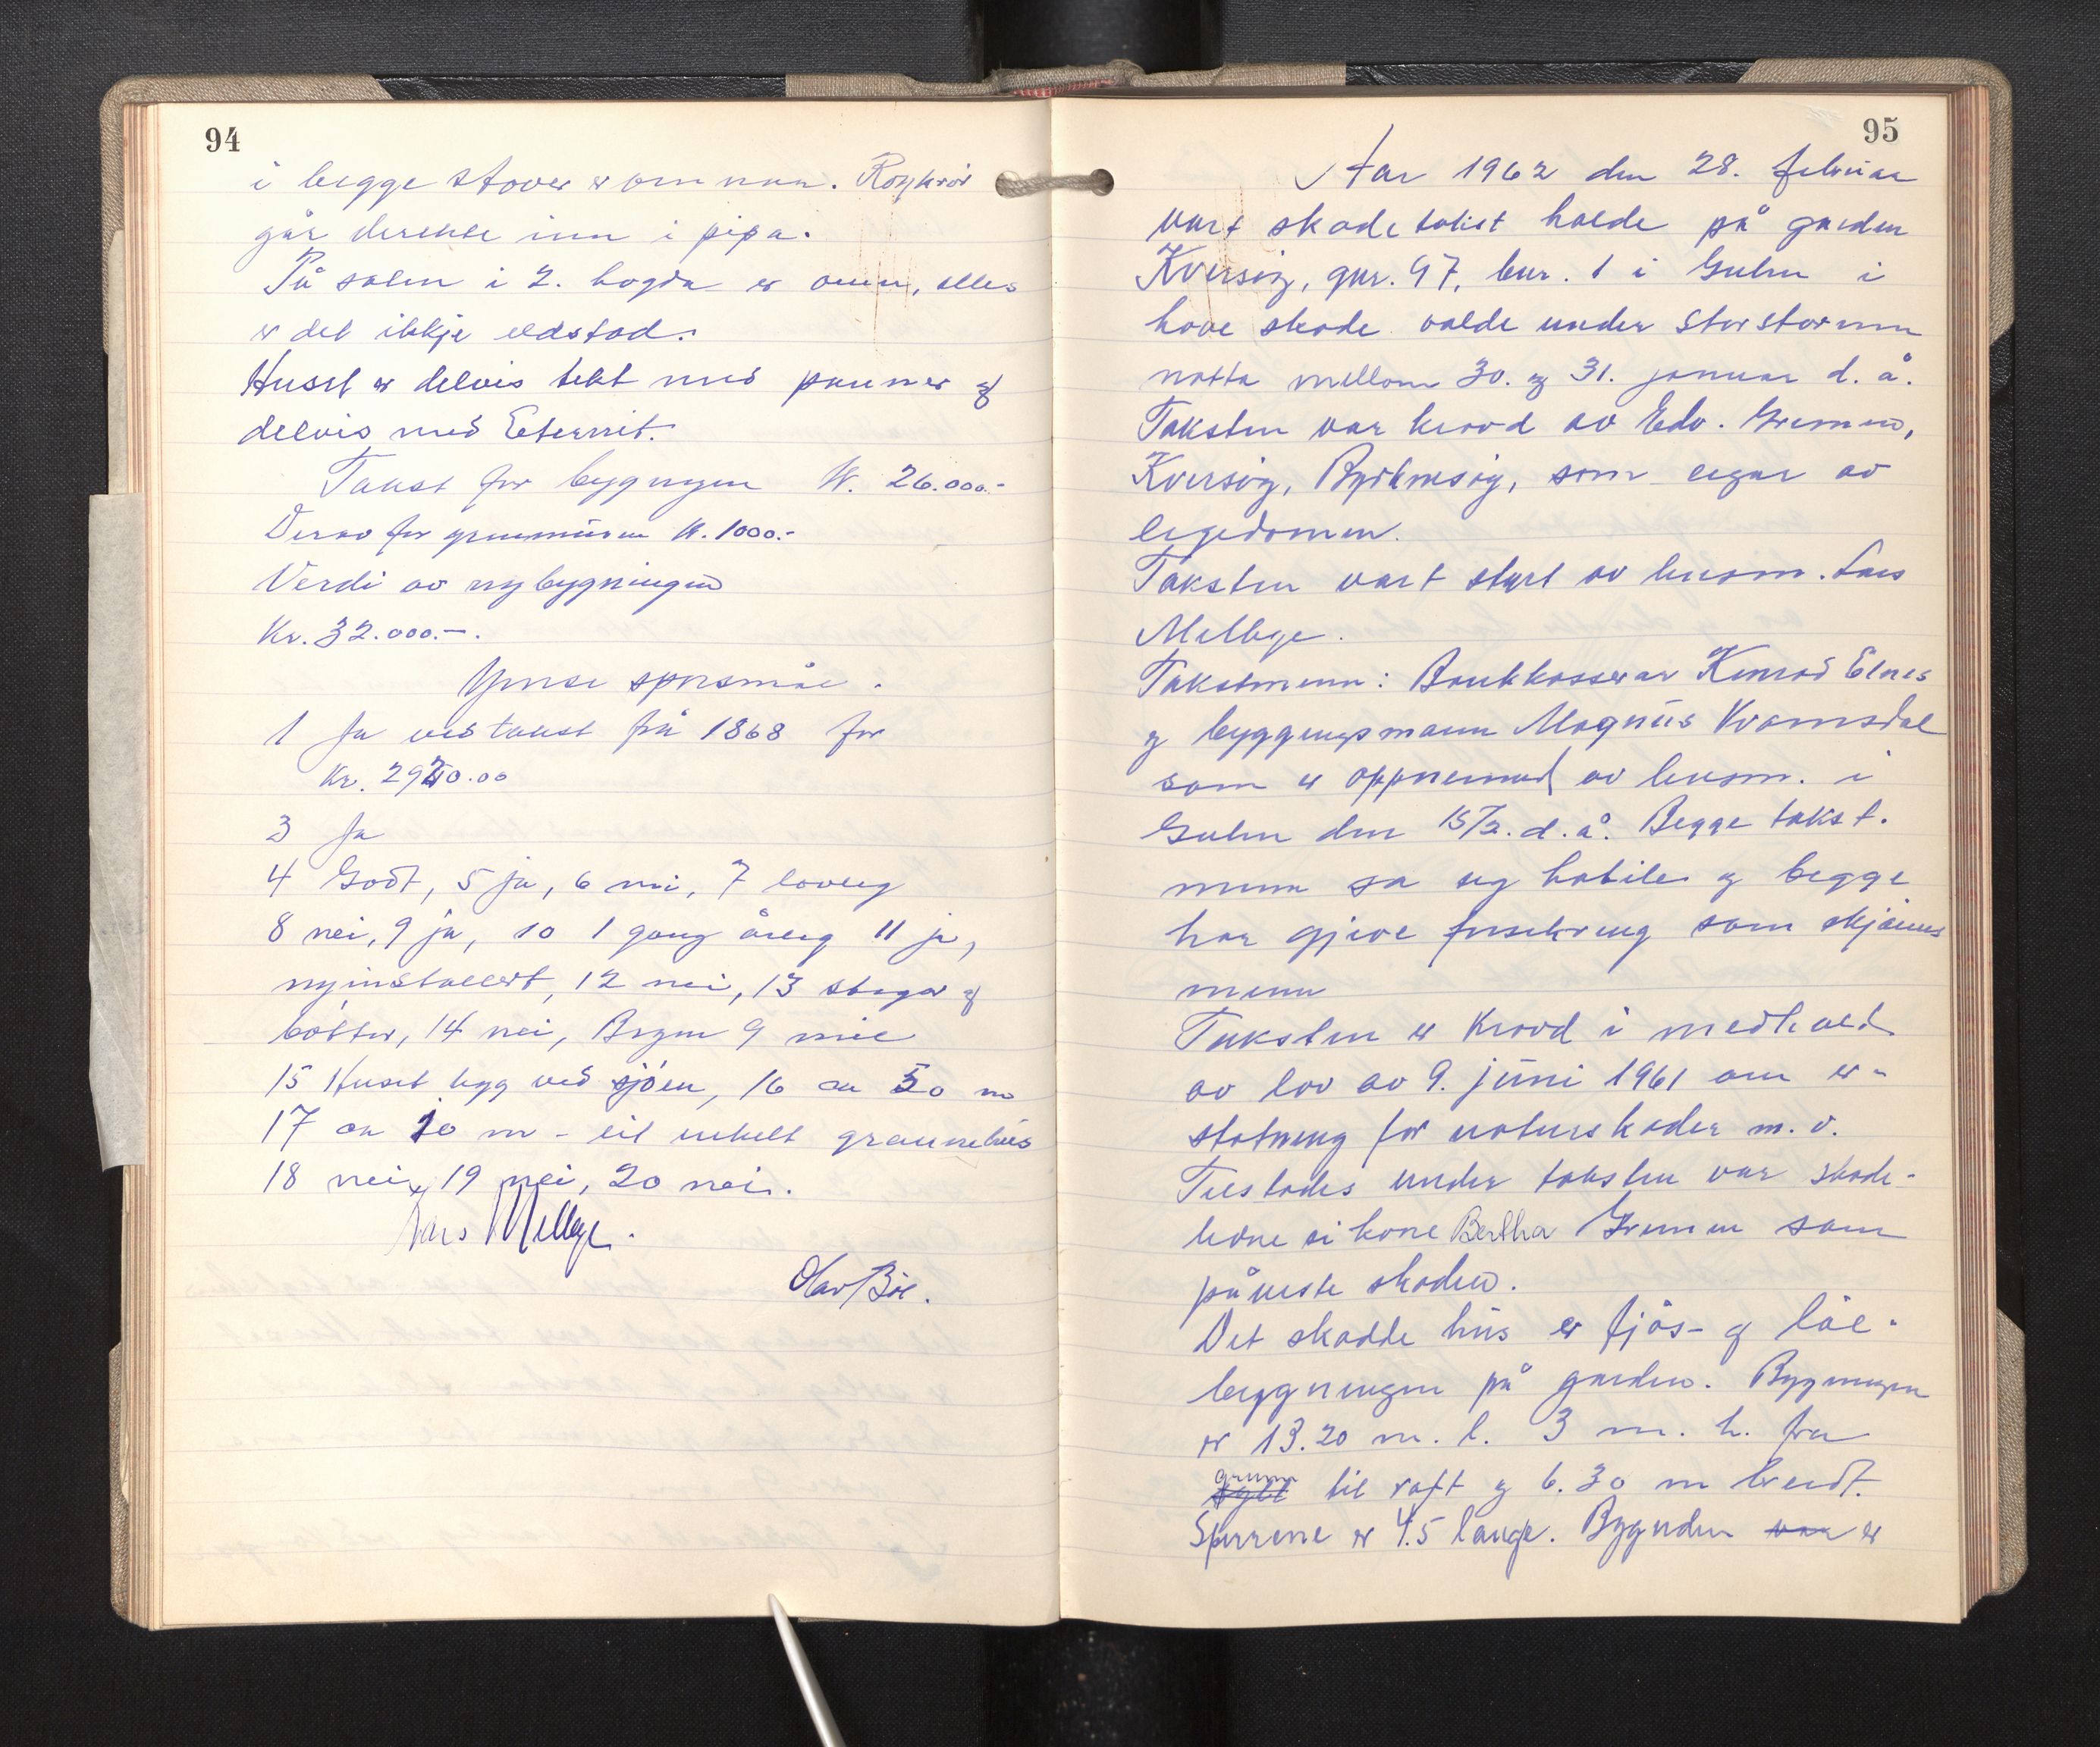 94
i begge stover er omnar. Røykrør
går direkte inn i pipa.
På salen i 2. høgda er omn, elles
er det ikkje eldstad.
Huset er delvis tekt med panner og
delvis med Eternit.
Takst for bygningen kr. 26.000.-
Derav for grunnmuren kr. 1000.-
Verdi av nybygningen
Kr. 32.000.-.
Ymse spursmål.
1 Ja ved takst frå 1868 for
Kr. 2920.00
3 Ja
4 Godt, 5 ja, 6 nei, 7 lovleg
8 nei, 9 ja, 10 1 gong årleg 11 ja,
nyinstallert, 12 nei, 13 stegar og
bøtter, 14 nei, Brynn 9 mil
15 Huset ligg ved sjøen, 16 ca 50 m
17 ca 10 m - eit enkelt grannehus
18 nei, 19 nei, 20 nei.
Lars Mellbye.
Olav Böe.
95
Aar 1962 den 28. februar
vart skadetakst halde på garden
Kversøy, gnr. 97, bnr. 1 i Gulen i
høve skade valde under storstormen
natta mellom 30. og 31. januar d. å.
Taksten var kravd av Edv. Grimen,
Kversøy, Byrknesøy, som eigar av
eigedomen.
Taksten vart styrt av lensm. Lars
Mellbye.
Takstmenn: Bankkasserar Konrad Elnes
og byggningsmann Magnus Kvamsdal
som er oppnemnd av lensm. i
Gulen den 15/2. d. å. Begge takst-
menn sa seg habile og begge
har gjeve forsikring som skjønns
menn
Taksten er kravd i medhald
av lov av 9. juni 1961 om er-
statning for naturskader m. v.
Tilstades under taksten var skade-
lidne si kone Bertha Grimen som
påviste skaden.
Det skadde hus er fjøs- og löe-
byggningen på garden. Bygningen
er 13.20 m. l. 3 m. h. fra
grunn til raft og 6.30 m breidt.
Sperrene er 4.5 lange. Bygnden var er